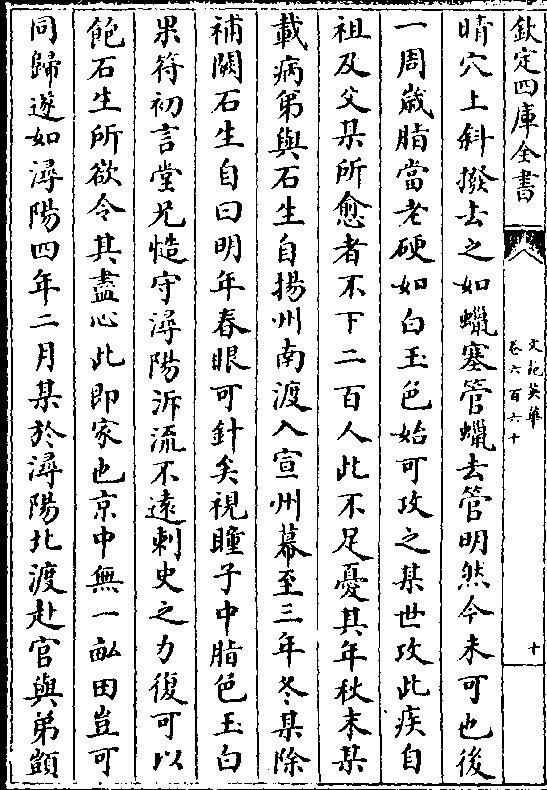 欽定四庫全書
文苑英華
卷六百六十
十
睛穴上斜撥去之如蠟塞管蠟去管明然今未可也後
一周歲脂當老硬如白玉色始可攻之某世攻此疾自
祖及父某所愈者不下二百人此不足憂其年秋末某
載病弟與石生自揚州南渡入宣州幕至三年冬某除
補闕石生自曰明年春眼可針矣視瞳子中脂色玉白
果符初言堂兄慥守潯陽泝流不遠刺史之力復可以
飽石生所欲令其盡心此即家也京中無一畝田豈可
同歸遂如潯陽四年二月某於潯陽北渡赴官與弟顗